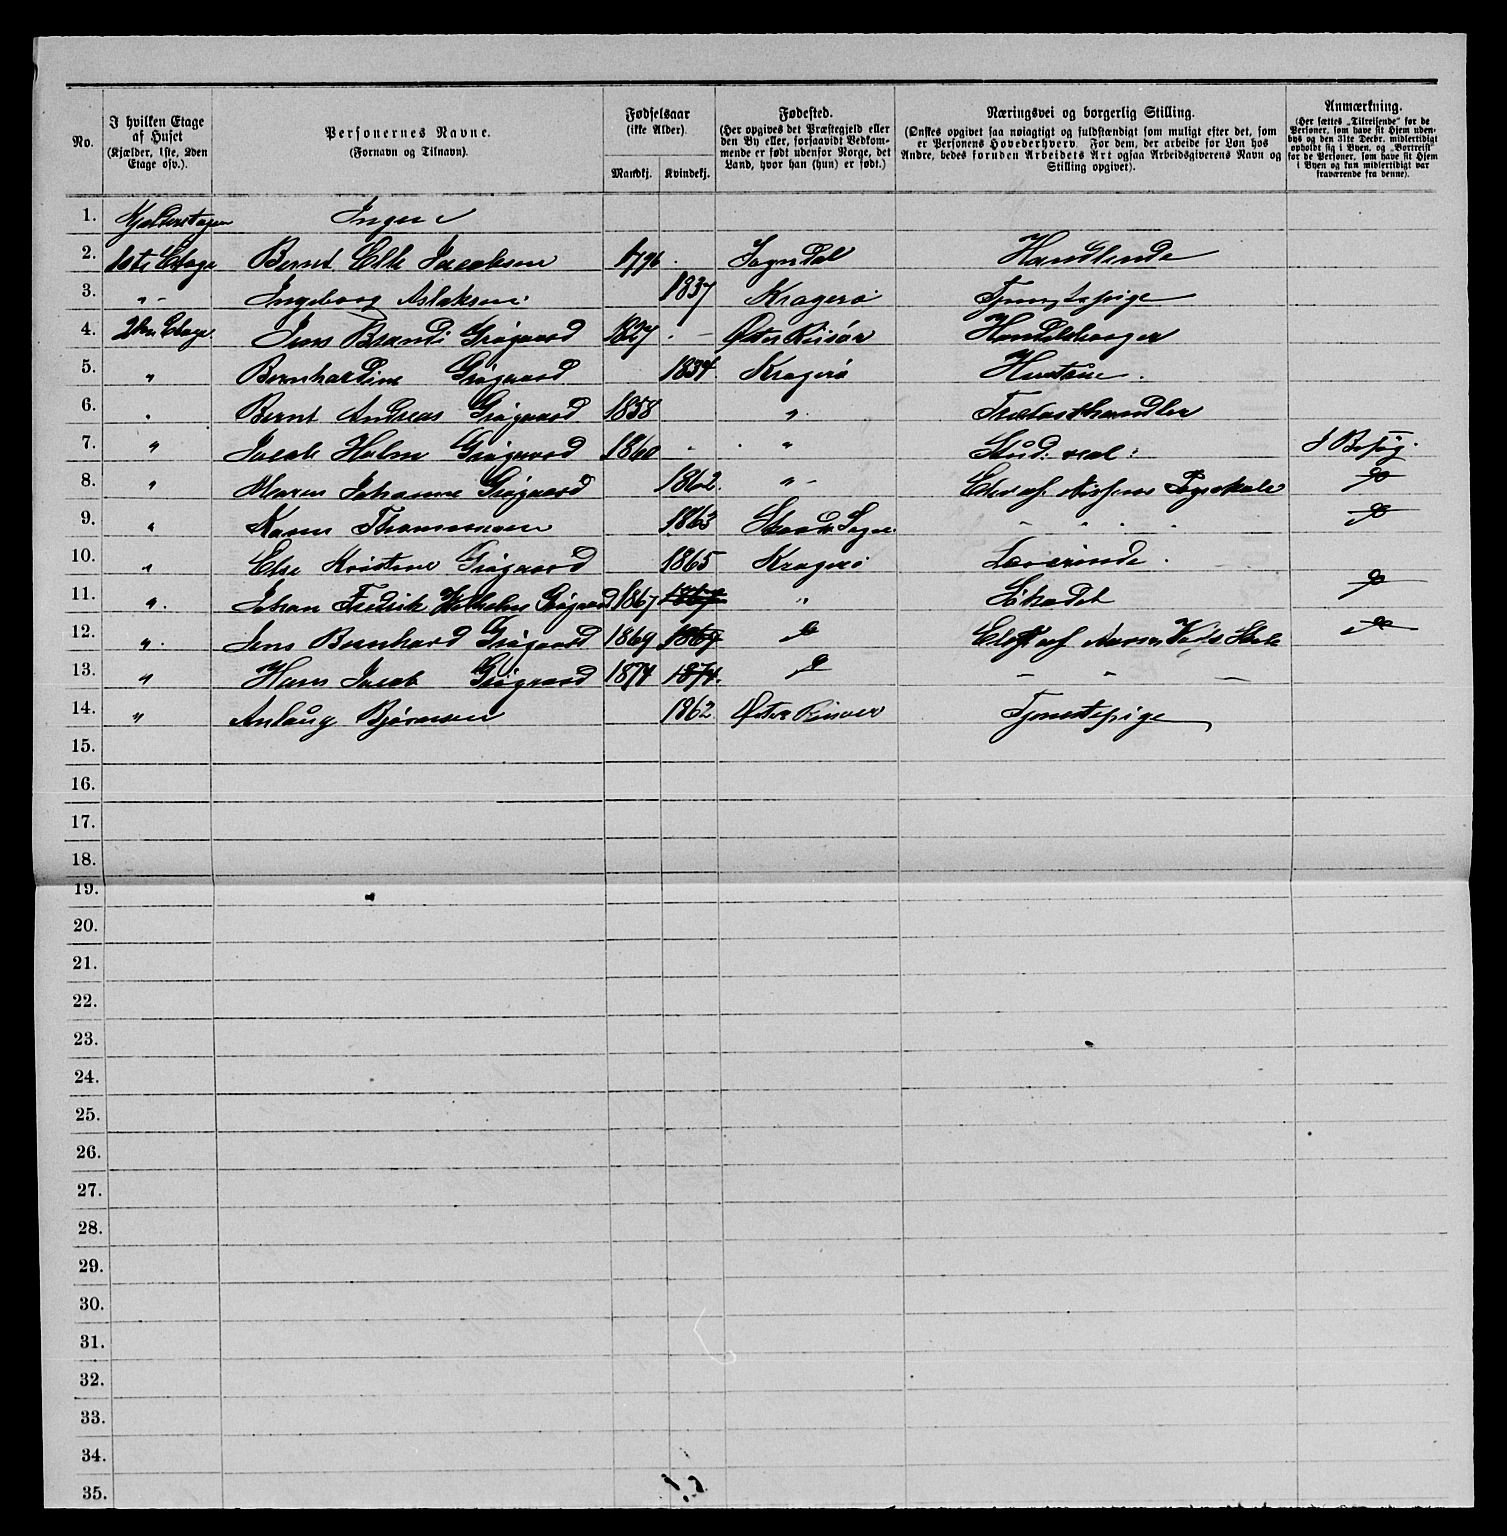 No. | I hvilken Etage af Huset (Kjælder, 1ste, 2den Etage osv.). | Personernes Navne. (Fornavn og Tilnavn). | Fødselsaar (ikke Alder). Mandkj. | Kvindekj. | Fødested. (Her opgives det Præstegjeld eller den By eller, forsaavidt Vedkommende er født udenfor Norge, det Land, hvor han (hun) er født.) | Næringsvei og borgerlig Stilling. (Ønskes opgivet saa nøiagtigt og fuldstændigt som muligt efter det, som er Personens Hovederhverv. For dem, der arbeide for Løn hos Andre, bedes foruden Arbeidets Art ogsaa Arbeidsgiverens Navn og Stilling opgivet). | Anmærkning. (Her sættes „Tilreisende" for de Personer, som have sit Hjem udenbys og den 31te Decbr. midlertidigt opholdt sig i Byen, og „Bortreist" for de Personer, som have sit Hjem i Byen og kun midlertidigt var fraværende fra denne).
1. Kjelderetagen Ingen
2. 1ste Etage Bernt Jacobsen 1796 Sogndal Handlende
3. " Ingeborg Aslaksen 1837 Kragerø Tjenestepige
4. 2den Etage Jens Brandi Grøgaard 1827 Øster Riisør Handelsborger
5. " Bernhardine Grøgaard 1834 Kragerø Hustrue
6. " Bernt Andreas Grøgaard 1858 " Trælasthandler
7. " Jacob Holm Grøgaard 1860 " Stud: real: I Besøg
8. " Maren Johanne Grøgaard 1862 " Elev af Nissens Pigeskole do
9. " Karen Thommesen 1863 " do
10. " Else Kristine Grøgaard 1865 Kragerø Lærerinde
11. " Johan Fredrik Wilhelm Grøgaard 1867 1867 " Søkadet do
12. " Jens Bernhard Grøgaard 1869 1869 do Elev af Skole do
13. " Hans Jacob Grøgaard 1874 1874 do "
14. " Anlaug Bjørnsen 1862 Øster Riisøer Tjenestepige
15.
16.
17.
18.
19.
20.
21.
22.
23.
24.
25.
26.
27.
28.
29.
30.
31.
32.
33.
34.
35.